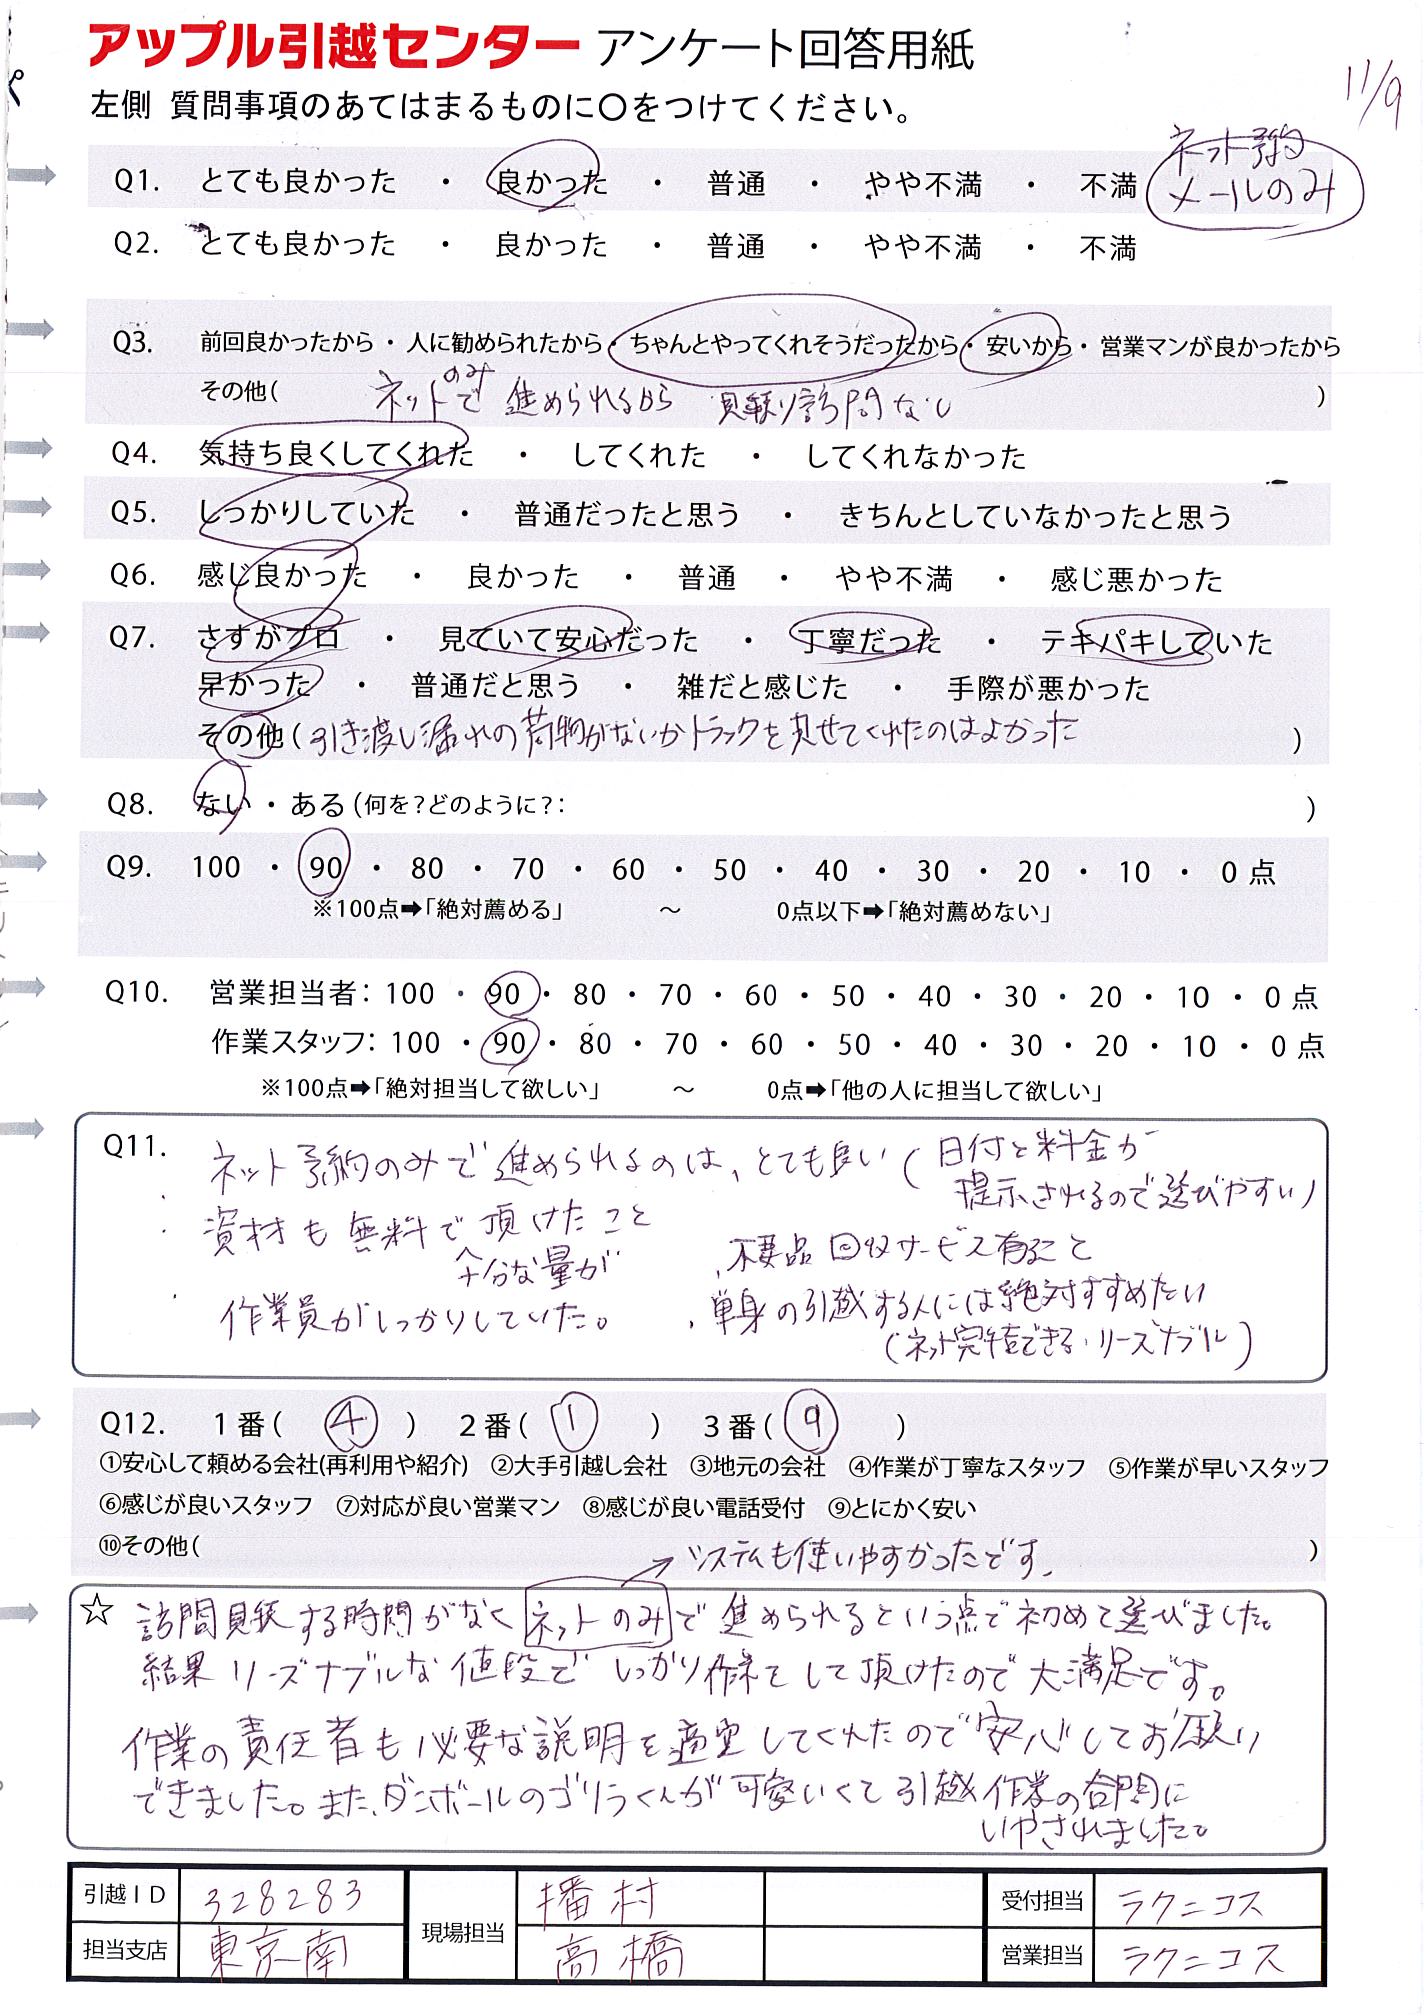 アップル引越センター アンケート回答用紙
11/9
左側 質問事項のあてはまるものに〇をつけてください。
ネット予約
メールのみ
Q1. とても良かった ・ 良かった ・ 普通 ・ やや不満 ・ 不満
Q2. とても良かった ・ 良かった ・ 普通 ・ やや不満 ・ 不満
Q3. 前回良かったから・人に勧められたから・ちゃんとやってくれそうだったから・安いから・営業マンが良かったから
その他( ネットのみで 進められるから 見積り訪問なし )
Q4. 気持ち良くしてくれた ・ してくれた ・ してくれなかった
Q5. しっかりしていた ・ 普通だったと思う ・ きちんとしていなかったと思う
Q6. 感じ良かった ・ 良かった ・ 普通 ・ やや不満 ・ 感じ悪かった
Q7. さすがプロ ・ 見ていて安心だった ・ 丁寧だった ・ テキパキしていた
早かった ・ 普通だと思う ・ 雑だと感じた ・ 手際が悪かった
その他(引き渡し漏れの荷物がないかトラックを見せてくれたのはよかった )
Q8. ない・ある(何を?どのように?: )
Q9. 100 ・ 90 ・ 80 ・ 70 ・ 60 ・ 50 ・ 40 ・ 30 ・ 20 ・ 10 ・ 0点
※100点➡「絶対薦める」 ～ 0点以下➡「絶対薦めない」
Q10. 営業担当者: 100 ・ 90 ・ 80 ・ 70 ・ 60 ・ 50 ・ 40 ・ 30 ・ 20 ・ 10 ・ 0点
作業スタッフ: 100 ・ 90 ・ 80 ・ 70 ・ 60 ・ 50 ・ 40 ・ 30 ・ 20 ・ 10 ・ 0点
※100点➡「絶対担当して欲しい」 ～ 0点➡「他の人に担当して欲しい」
Q11. ・ネット予約のみで進められるのは、とても良い(日付と料金が
提示されるので選びやすい)
・資材も無料で頂けたこと
十分な量が
・不要品回収サービス有ること
・作業員がしっかりしていた。
・単身の引越する人には絶対すすめたい
(ネット完結できる・リーズナブル)
Q12. 1番( ④ ) 2番( ① ) 3番( ⑨ )
①安心して頼める会社(再利用や紹介) ②大手引越し会社 ③地元の会社 ④作業が丁寧なスタッフ ⑤作業が早いスタッフ
⑥感じが良いスタッフ ⑦対応が良い営業マン ⑧感じが良い電話受付 ⑨とにかく安い
⑩その他( )
→システムも使いやすかったです。
☆ 訪問見積する時間がなくネットのみで進められるという点で初めて選びました。
結果リーズナブルな値段でしっかり作業をして頂けたので大満足です。
作業の責任者も必要な説明を適宜してくれたので安心してお願い
できました。また、ダンボールのゴリラくんが可愛いくて引越作業の合間に
いやされました。
引越ID 328283 現場担当 播村 受付担当 ラクニコス
担当支店 東京南 高橋 営業担当 ラクニコス